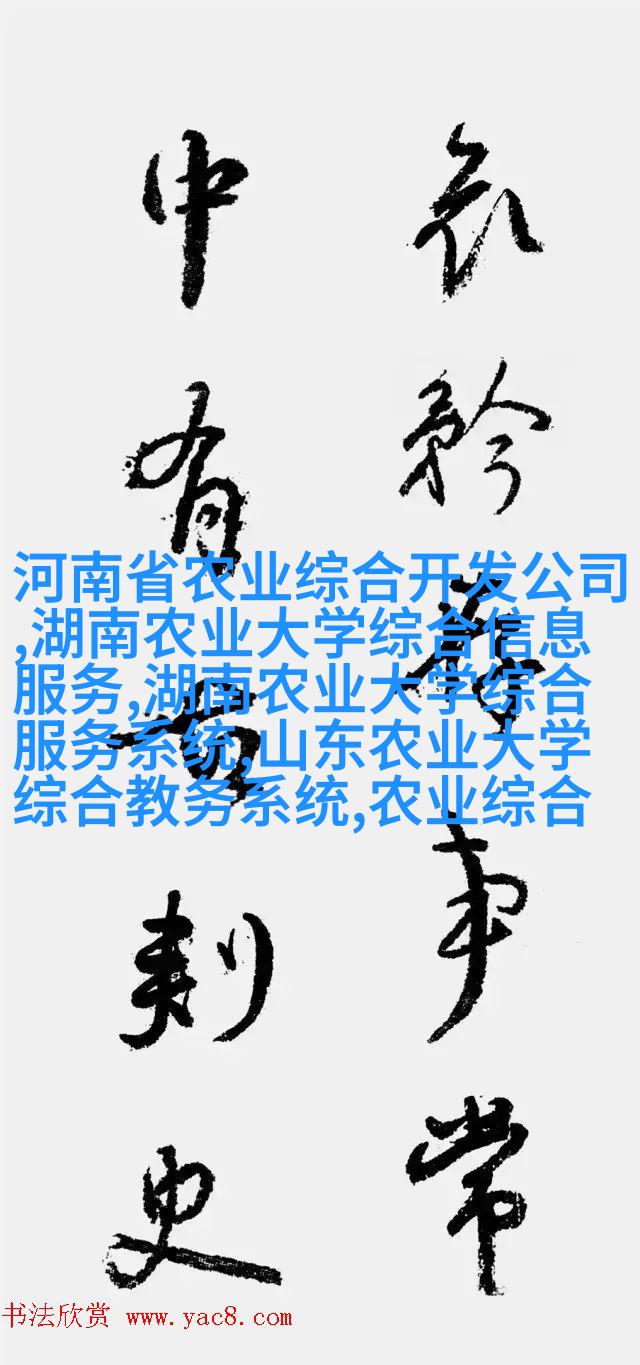 哀矜事常
中有古刺史
河南省农业综合开发公司
,湖南农业大学综合信息
服务,湖南农业大学综合
服务系统,山东农业大学
综合教务系统,农业综合
书法欣赏 www.yac8.com